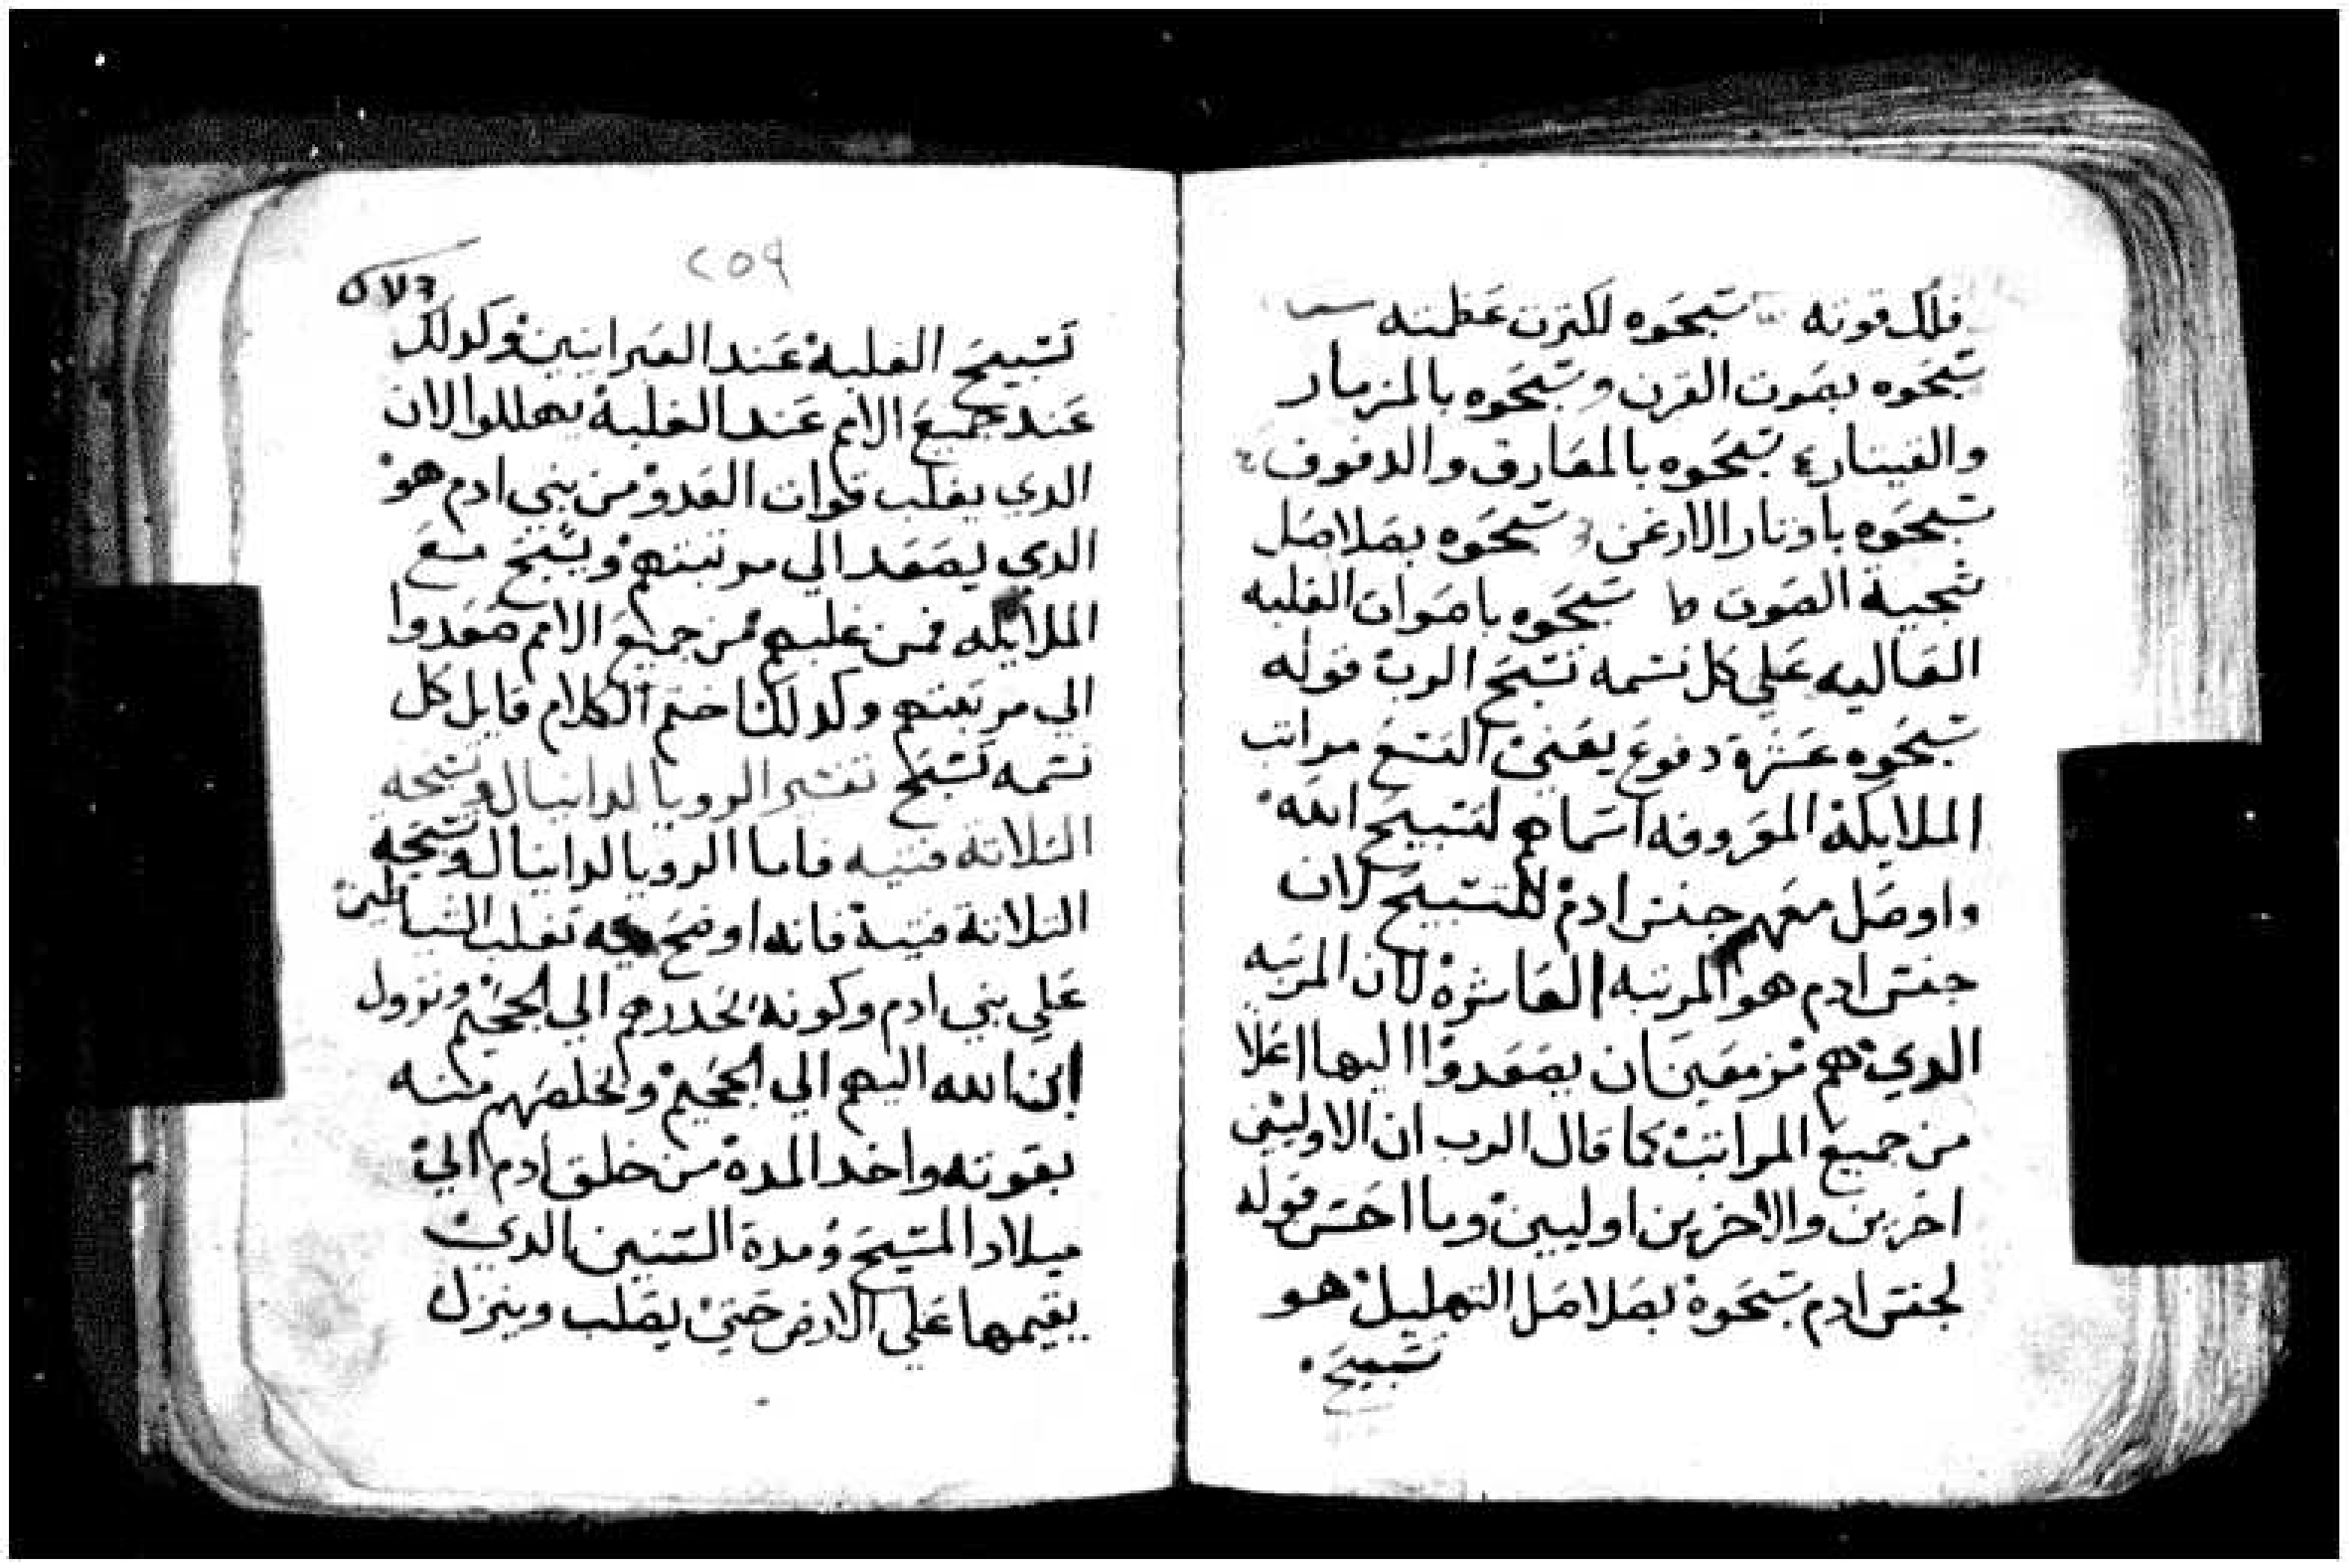 فلك قوته سبحوه لكترت عظمته
سبحوه بصوت القرن وسبحوه بالمزمار
والقيتاره سبحوه بالمعازف والدفوف
سبحوه باوتار الارغن سبحوه بصلاصل
شجية الصوت سبحوه باصوات الغلبه
العاليه على كل نسمه تسبح الرب قوله
سبحوه عشرة دفوع يعني التسع مراتب
الملايكة المعروفه اسماهم لتسبيح الله
واوصل معهم جنس ادم للتسبيح لان
جنس ادم هو المرتبه العاشرة لان المرتبه
الدي هم مزمعين ان يصعدوا اليها اعلا
من جميع المراتب كما قال الرب ان الاوليين
اخرين والاخرين اوليين وما احسن قوله
لجنس ادم سبحوه بصلاصل التهليل هو
تسبيح
٢٥٩
تسبيح الغلبة عند العبرانيين وكدلك
عند جميع الامم عند الغلبة يهللوا لان
الدي يغلب قوات العدو من بني ادم هو
الدي يصعد الي مرتبتهم ويسبح مع
الملايكه فمن غلبهم من جميع الامم صعدوا
الي مرتبتهم وكدلك ختم الكلام قايل كل
نسمه تسبح تفسير الرويا لدانيال وتسبحه
التلاتة فتيه فاما الرويا لدانيال وتسبحة
التلاتة فتية فانه اوضح فيه تغلب الشياطين
علي بني ادم وكونه يحدرهم الي الجحيم ونزول
ابن الله اليهم الي الجحيم وتخلصهم منه
بقوته واخد المدة من خلق ادم الي
ميلاد المسيح ومدة السنين الدي
يقيمها علي الارض حتي يصلب وينزل